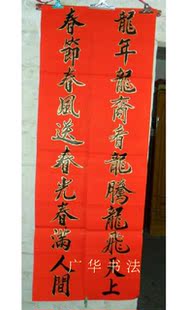 龍年龍裔音龍騰龍飛天上
春節春風送春光春滿人間
广华书法